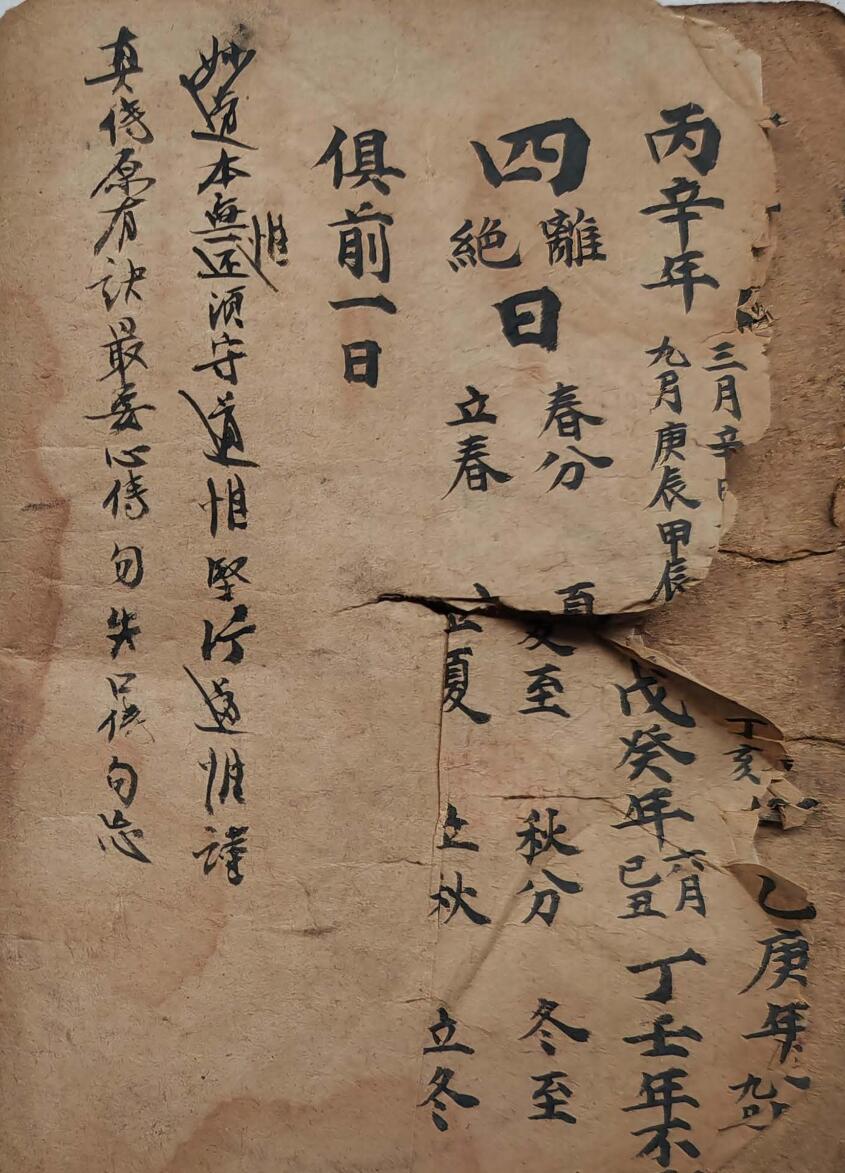 丁亥
乙庚年
丙辛年 三月辛
九月庚辰甲辰
戊癸年 六月
己丑
丁壬年不
四離絶日
春分 夏至 秋分 冬至
立春 立夏 立秋 立冬
俱前一日
妙道本無还須守道惟堅行道惟謹
惟
真传原有訣最要心传勿失口传勿忘